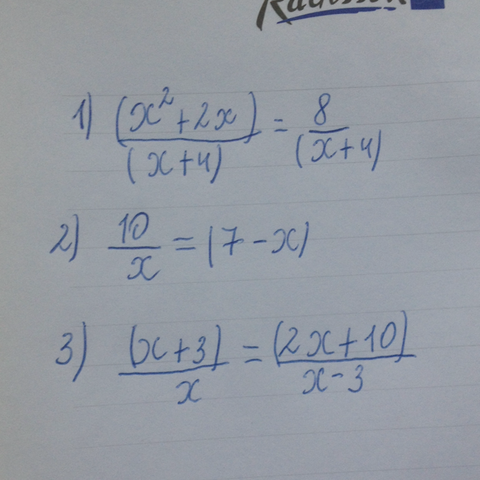 Radisson
1) (x²+2x)/(x+4) = 8/(x+4)
2) 10/x = (7-x)
3) (x+3)/x = (2x+10)/x-3